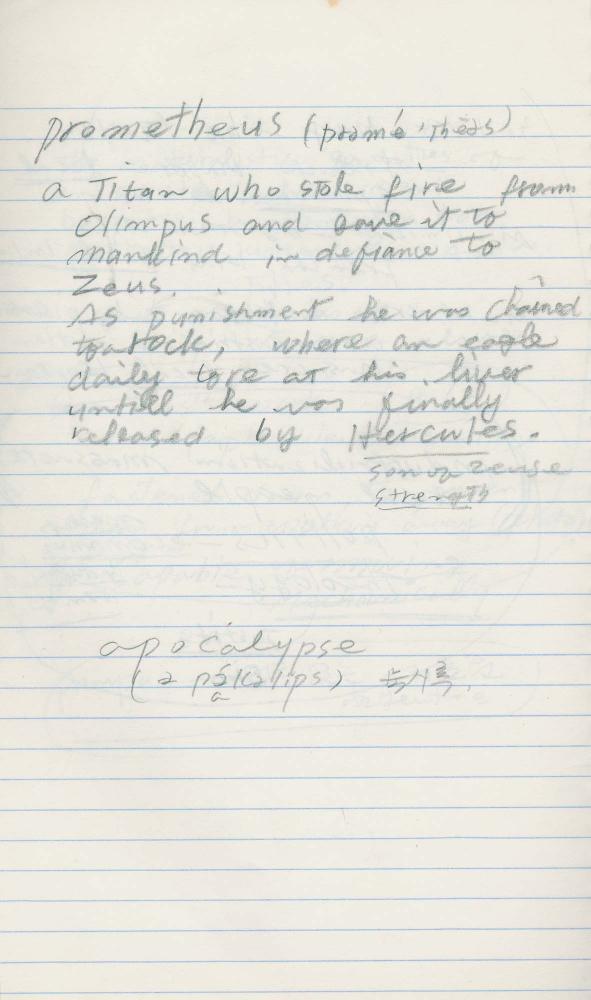 prometheus (promé'thēəs)
a Titan who stole fire from
Olimpus and gave it to
mankind in defiance to
Zeus.
As punishment he was chained
to a rock, where an eagle
daily tore at his liver
untill he was finally
released by Hercules.
son of zeuse
strength
apocalypse
(əpákəlips) 녹시록.